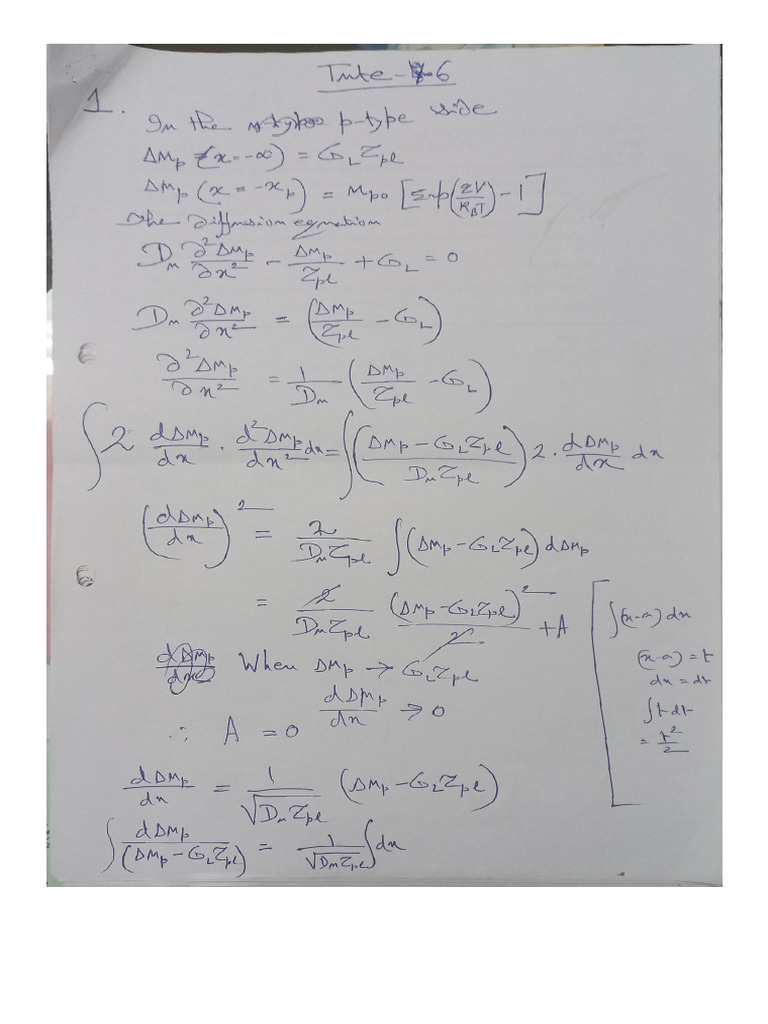 Tute-6
1. In the p-type side
Δn_p (x=-∞) = G_L τ_pl
Δn_p (x=-x_p) = n_po [Exp(qV/K_BT) - 1]
The diffusion equation
D_n ∂²Δn_p/∂x² - Δn_p/τ_pl + G_L = 0
D_n ∂²Δn_p/∂x² = (Δn_p/τ_pl - G_L)
∂²Δn_p/∂x² = 1/D_n (Δn_p/τ_pl - G_L)
∫ 2 dΔn_p/dx · d²Δn_p/dx² dx = ∫ ((Δn_p - G_L τ_pl)/(D_n τ_pl)) 2 · dΔn_p/dx dx
(dΔn_p/dx)² = 2/(D_n τ_pl) ∫ (Δn_p - G_L τ_pl) dΔn_p
= 2/(D_n τ_pl) (Δn_p - G_L τ_pl)²/2 + A
When Δn_p → G_L τ_pl
dΔn_p/dx → 0
∴ A = 0
dΔn_p/dx = 1/√(D_n τ_pl) (Δn_p - G_L τ_pl)
∫ dΔn_p/(Δn_p - G_L τ_pl) = 1/√(D_n τ_pl) ∫ dx
∫(x-a) dx
(x-a) = t
dx = dt
∫ t dt
= t²/2